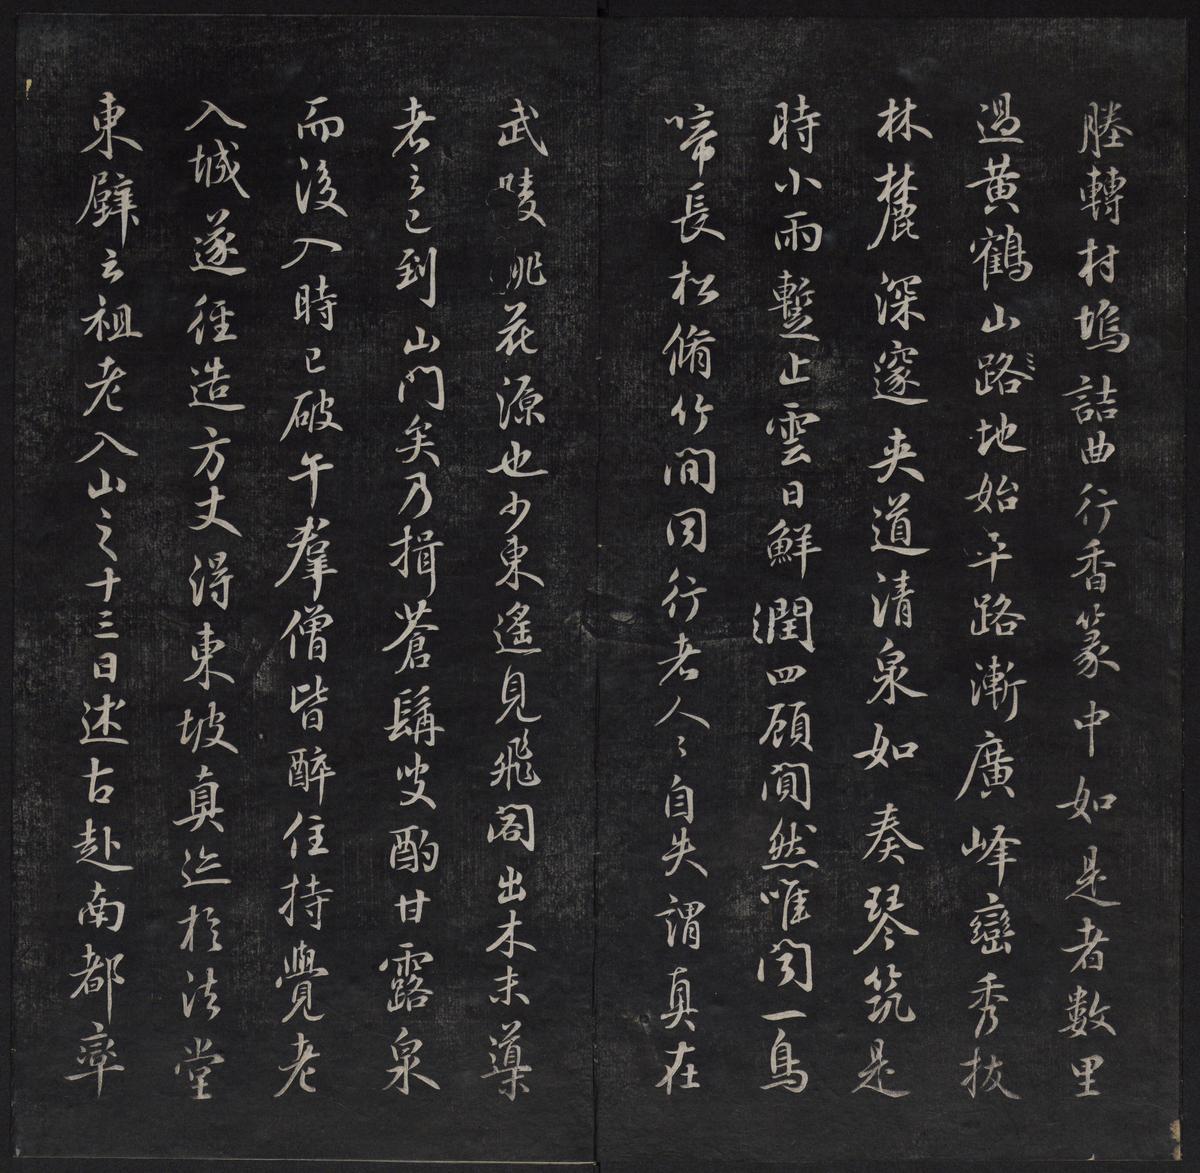 塍轉村塢詰曲行香篆中如是者數里
過黃鶴山路地始平路漸廣峰巒秀拔
林麓深邃夾道清泉如奏琴筑是
時小雨暫止雲日鮮潤四顧闃然唯聞一鳥
啼長松脩竹間同行老人〻自失謂真在
武陵桃花源也少東遙見飛閣出木末導
者云已到山門矣乃揖蒼髯叟酌甘露泉
而後入時已破午羣僧皆醉住持覺老
入城遂徑造方丈得東坡真迹於法堂
東壁云祖老入山之十三日述古赴南都率